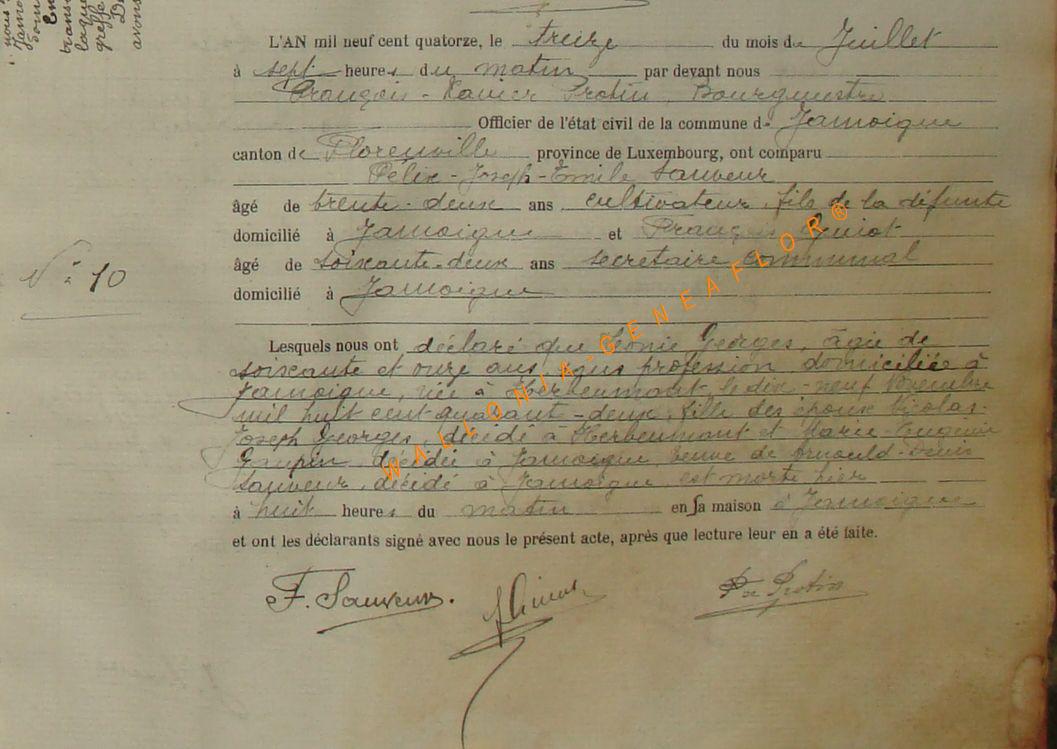 L'AN mil neuf cent quatorze, le treize du mois de Juillet
à sept heures du matin par devant nous
François-Xavier Protin, Bourgmestre
Officier de l'état civil de la commune de Jamoigne
canton de Florenville province de Luxembourg, ont comparu
Félix-Joseph-Emile Sauveur
âgé de trente-deux ans cultivateur, fils de la défunte
domicilié à Jamoigne et François
N° 10
âgé de soixante-deux ans secrétaire communal
domicilié à Jamoigne
Lesquels nous ont déclaré que Léonie Georges, âgée de
soixante et onze ans, sans profession domiciliée à
Jamoigne, née à Herbeumont le dix-neuf Novembre
mil huit cent quarante-deux, fille des époux Nicolas-
Joseph Georges, décédé à Herbeumont et Marie-Eugénie
décédée à Jamoigne, veuve de Arnould-Denis
Sauveur, décédé à Jamoigne est morte hier
à huit heures du matin en sa maison à Jamoigne
et ont les déclarants signé avec nous le présent acte, après que lecture leur en a été faite.
F. Sauveur.
Protin
WALLONIA-GENEAFLOR®